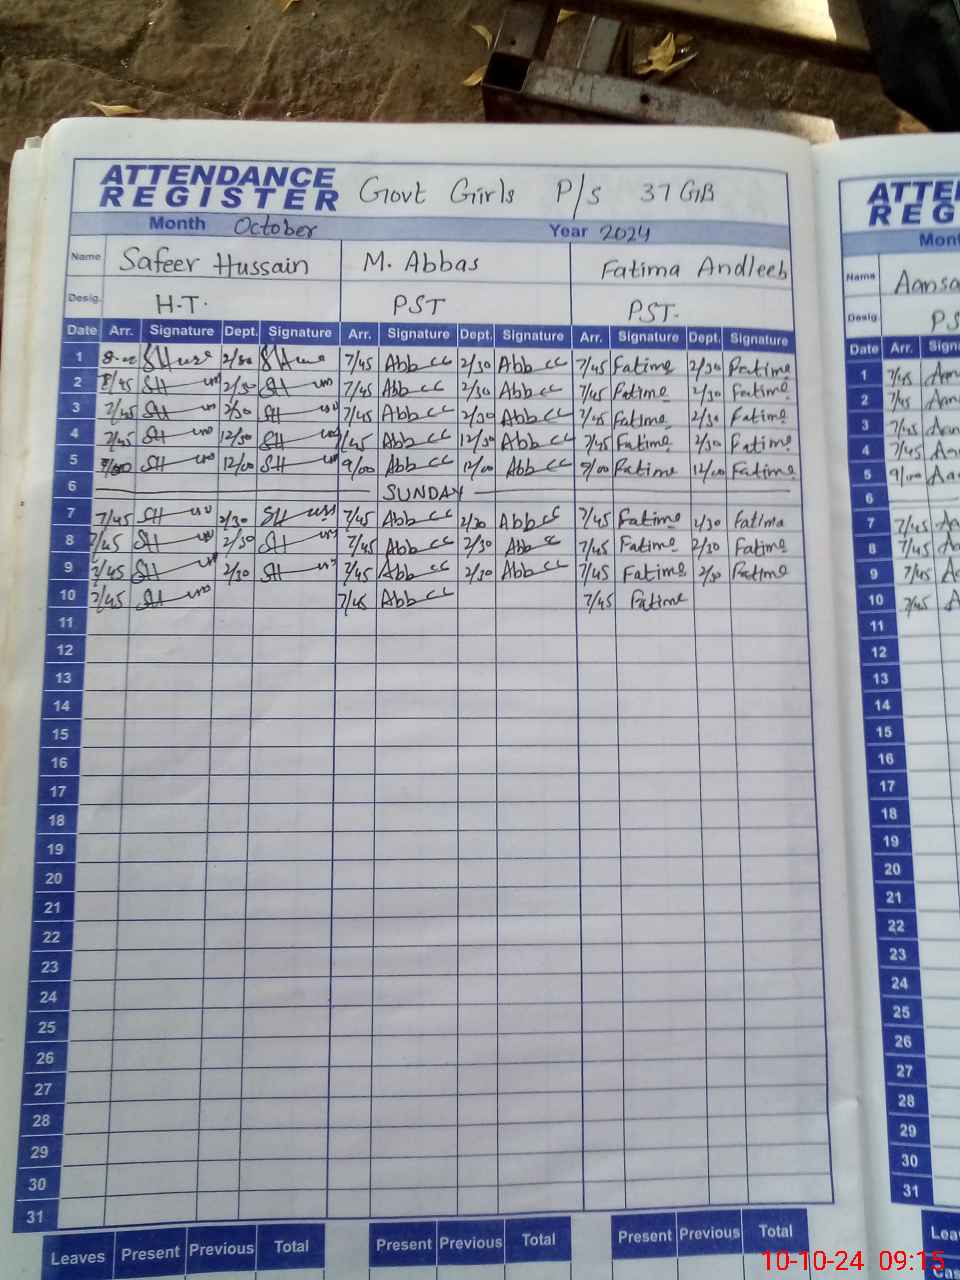 ATTENDANCE REGISTER Govt Girls P/S 37 GB
Month October Year 2024
Name Safeer Hussain M. Abbas Fatima Andleeb
Desig. H.T. PST PST.
Date Arr. Signature Dept. Signature Arr. Signature Dept. Signature Arr. Signature Dept. Signature
1 2/30 7/45 Abb 2/30 Abb 7/45 Fatime 2/30 Fatime
2 SH 2/30 SH 7/45 Abb 2/30 Abb 7/45 Fatime 2/30 Fatime
3 7/45 SH 2/30 SH 7/45 Abb 2/30 Abb 7/45 Fatime 2/30 Fatime
4 7/45 SH 12/30 SH 7/45 Abb 12/30 Abb 7/45 Fatime 2/30 Fatime
5 SH 12/00 SH 9/00 Abb 12/00 Abb 9/00 Fatime 12/00 Fatime
6 SUNDAY
7 7/45 SH 2/30 SH 7/45 Abb 2/30 Abb 7/45 Fatime 2/30 Fatima
8 7/45 SH 2/30 SH 7/45 Abb 2/30 Abb 7/45 Fatime 2/30 Fatime
9 7/45 SH 2/30 SH 7/45 Abb 2/30 Abb 7/45 Fatime 2/30 Fatime
10 7/45 SH 7/45 Abb 7/45 Fatime
11
12
13
14
15
16
17
18
19
20
21
22
23
24
25
26
27
28
29
30
31
Leaves Present Previous Total Present Previous Total Present Previous Total
ATTE
REG
Mon
Name Aansa
Desig. PS
Date Arr. Sign
1 7/45
2 7/45
3 7/45
4 7/45
5 9/00
6
7 7/45
8 7/45
9 7/45
10 7/45
11
12
13
14
15
16
17
18
19
20
21
22
23
24
25
26
27
28
29
30
31
Lea
Cas
10-10-24 09:15